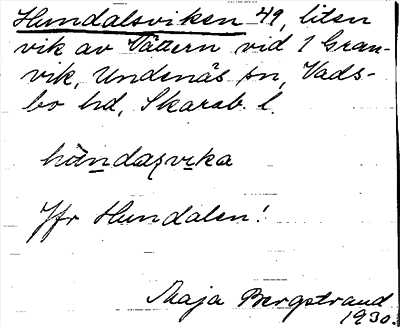 Hundalsviken 49, liten
vik av Vättern vid 1 Gran-
vik, Undenäs sn, Vads-
bo hd, Skarab. l.
hùndaʂvika
Jfr Hundalen!
Maja Bergstrand
1930.